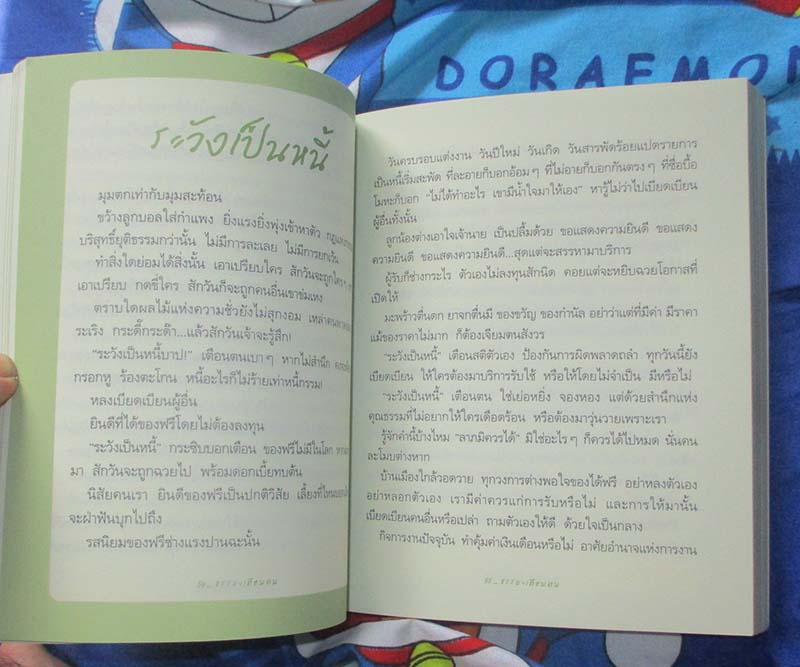 DORAEMON
ระวังเป็นหนี้
มุมตกเท่ากับมุมสะท้อน
ขว้างลูกบอลใส่กำแพง ยิ่งแรงยิ่งพุ่งเข้าหาตัว
บริสุทธิ์ยุติธรรมกว่านั้น ไม่มีการละเลย ไม่มีการยกเว้น
ทำสิ่งใดย่อมได้สิ่งนั้น เอาเปรียบใคร สักวันจะถูกใครๆ
เอาเปรียบ กดขี่ใคร สักวันก็จะถูกคนอื่นเขาข่มเหง
ตราบใดผลไม้แห่งความชั่วยังไม่สุกงอม เหล่าคนพาล
ระเริง กระดี๊กระด๊า...แล้วสักวันเจ้าจะรู้สึก!
"ระวังเป็นหนี้บาป!" เตือนตนเบาๆ หากไม่สำนึก
กรอกหู ร้องตะโกน หนี้อะไรก็ไม่ร้ายเท่าหนี้กรรม!
หลงเบียดเบียนผู้อื่น
ยินดีที่ได้ของฟรีโดยไม่ต้องลงทุน
"ระวังเป็นหนี้" กระซิบบอกเตือน ของฟรีไม่มีในโลก
มา สักวันจะถูกฉวยไป พร้อมดอกเบี้ยทบต้น
นิสัยคนเรา ยินดีของฟรีเป็นปกติวิสัย เลี้ยงที่ไหนบอก
จะฝ่าฟันบุกไปถึง
รสนิยมของฟรีช่างแรงปานฉะนั้น
วันครบรอบแต่งงาน วันปีใหม่ วันเกิด วันสารพัดร้อยแปดรายการ
เป็นหนี้เริ่มสะพัด ที่ละอายก็บอกอ้อมๆ ที่ไม่อายก็บอกกันตรงๆ ที่ซื่อบื้อ
โมหะก็บอก "ไม่ได้ทำอะไร เขามีน้ำใจมาให้เอง" หารู้ไม่ว่าไปเบียดเบียน
ผู้อื่นทั้งนั้น
ลูกน้องต่างเอาใจเจ้านาย เป็นปลื้มด้วย ขอแสดงความยินดี ขอแสดง
ความยินดี ขอแสดงความยินดี...สุดแต่จะสรรหามาบริการ
ผู้รับก็ช่างกระไร ตัวเองไม่ลงทุนสักนิด คอยแต่จะหยิบฉวยโอกาสที่
เปิดให้
มะพร้าวตื่นดก ยาจกตื่นมี ของขวัญ ของกำนัล อย่าว่าแต่ที่มีค่า มีราคา
แม้ของราคาไม่มาก ก็ต้องเจียมตนสังวร
"ระวังเป็นหนี้" เตือนสติตัวเอง ป้องกันการผิดพลาดถลำ ทุกวันนี้ยัง
เบียดเบียน ให้ใครต้องมาบริการรับใช้ หรือให้โดยไม่จำเป็น มีหรือไม่
"ระวังเป็นหนี้" เตือนตน ใช่เย่อหยิ่ง จองหอง แต่ด้วยสำนึกแห่ง
คุณธรรมที่ไม่อยากให้ใครเดือดร้อน หรือต้องมาวุ่นวายเพราะเรา
รู้จักคำนี้บ้างไหม "ลาภมิควรได้" มิใช่อะไรๆ ก็ควรได้ไปหมด นั่นคน
ละโมบต่างหาก
บ้านเมืองใกล้วอดวาย ทุกวงการต่างพอใจของได้ฟรี อย่าหลงตัวเอง
อย่าหลอกตัวเอง เรามีค่าควรแก่การรับหรือไม่ และการให้มานั้น
เบียดเบียนคนอื่นหรือเปล่า ถามตัวเองให้ดี ด้วยใจเป็นกลาง
กิจการงานปัจจุบัน ทำคุ้มค่าเงินเดือนหรือไม่ อาศัยอำนาจแห่งการงาน
ธรรมะเตือนตน
ธรรมะเตือนตน